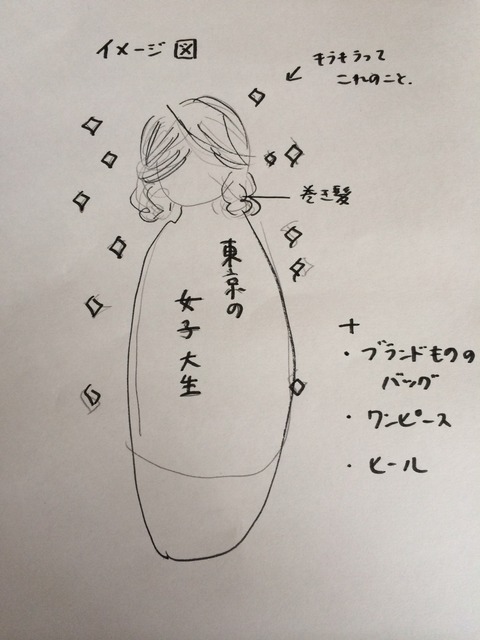 イメージ図
キラキラって
これのこと.
巻き髪
東京の
女子大生
+
・ブランドものの
バッグ
・ワンピース
・ヒール